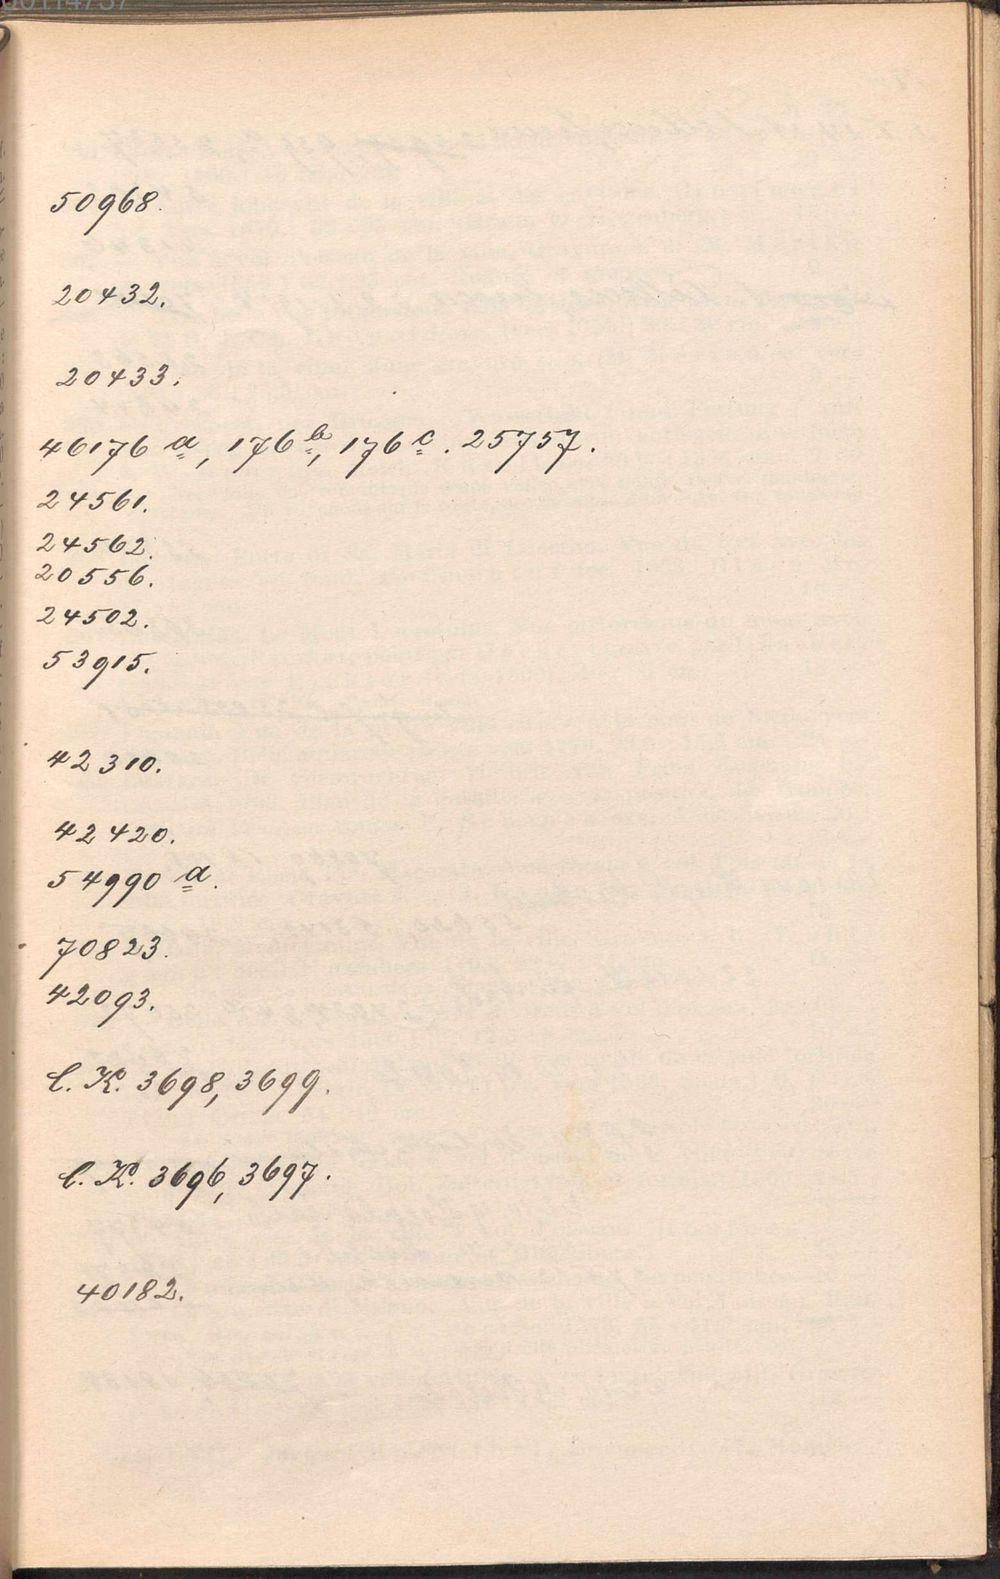 50968.
20432.
20433.
46176 a, 176 b, 176 c. 25757.
24561.
24562.
20556.
24502.
53915.
42310.
42420.
54990 a.
70823.
42093.
C. K. 3698, 3699.
C. K. 3696, 3697.
40182.